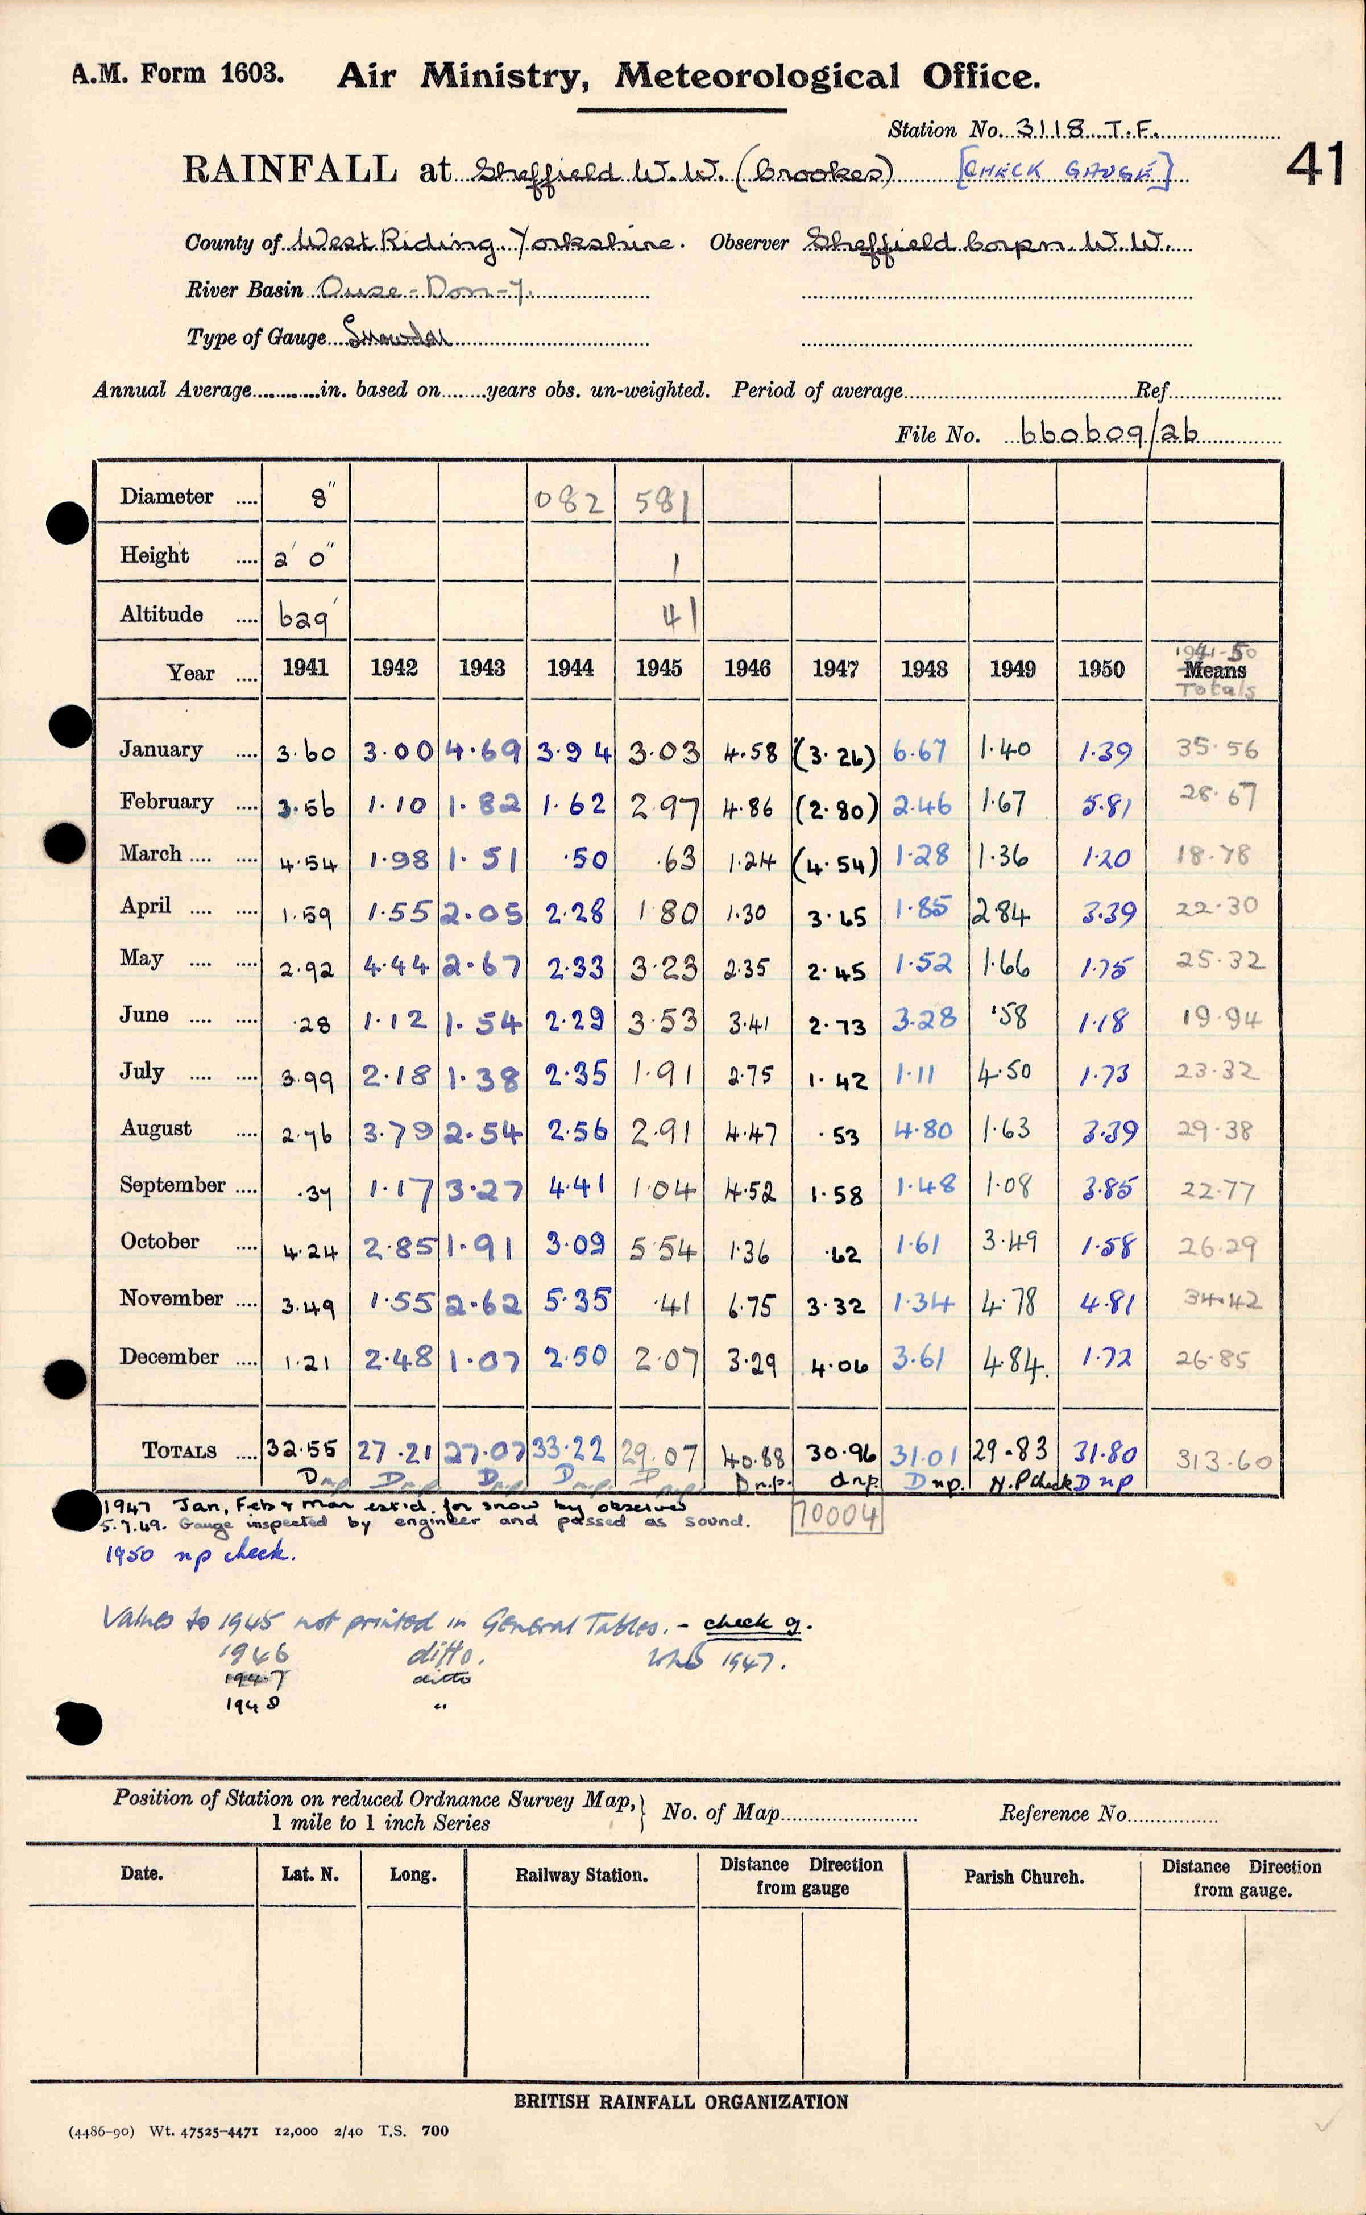 A.M. Form 1603. Air Ministry, Meteorological Office.
Station No. 3118 T.F.
41
RAINFALL at Sheffield W.W. (Crookes) [CHECK GAUGE]
County of West Riding, Yorkshire. Observer Sheffield Corpn. W.W.
River Basin Ouse-Don-7.
Type of Gauge Snowdon
Annual Average............in. based on........years obs. un-weighted. Period of average Ref
File No. 660609/26
Diameter .... 8" 082 581
Height .... 2' 0" 1
Altitude .... 629' 41
1941-50
Year .... 1941 1942 1943 1944 1945 1946 1947 1948 1949 1950 Means
Totals
January .... 3.60 3.00 4.69 3.94 3.03 4.58 (3.26) 6.67 1.40 1.39 35.56
February .... 3.56 1.10 1.82 1.62 2.97 4.86 (2.80) 2.46 1.67 5.81 28.67
March .... .... 4.54 1.98 1.51 .50 .63 1.24 (4.54) 1.28 1.36 1.20 18.78
April .... .... 1.59 1.55 2.05 2.28 1.80 1.30 3.65 1.85 2.84 3.39 22.30
May .... .... 2.92 4.44 2.67 2.33 3.23 2.35 2.45 1.52 1.66 1.75 25.32
June .... .... .28 1.12 1.54 2.29 3.53 3.41 2.73 3.28 .58 1.18 19.94
July .... .... 3.99 2.18 1.38 2.35 1.91 2.75 1.42 1.11 4.50 1.73 23.32
August .... 2.76 3.79 2.54 2.56 2.91 4.47 .53 4.80 1.63 3.39 29.38
September .... .37 1.17 3.27 4.41 1.04 4.52 1.58 1.48 1.08 3.85 22.77
October .... 4.24 2.85 1.91 3.09 5.54 1.36 .62 1.61 3.49 1.58 26.29
November .... 3.49 1.55 2.62 5.35 .41 6.75 3.32 1.34 4.78 4.81 34.42
December .... 1.21 2.48 1.07 2.50 2.07 3.29 4.06 3.61 4.84. 1.72 26.85
TOTALS .... 32.55 27.21 27.07 33.22 29.07 40.88 30.96 31.01 29.83 31.80 313.60
Dnp Dnp. Dnp Dnp. Dnp. Dn.p. dnp. Dnp. N.P check Dnp
1947 Jan, Feb & Mar est'd. for snow by observer
5.7.49. Gauge inspected by engineer and passed as sound. 70004
1950 np check.
Values to 1945 not printed in General Tables. - check g.
1946 ditto. 1947.
1947 ditto
1948 "
Position of Station on reduced Ordnance Survey Map,} No. of Map Reference No.
1 mile to 1 inch Series
Date. Lat. N. Long. Railway Station. Distance from gauge Direction Parish Church. Distance Direction from gauge.
BRITISH RAINFALL ORGANIZATION
(4486-90) Wt. 47525-4471 12,000 2/40 T.S. 700